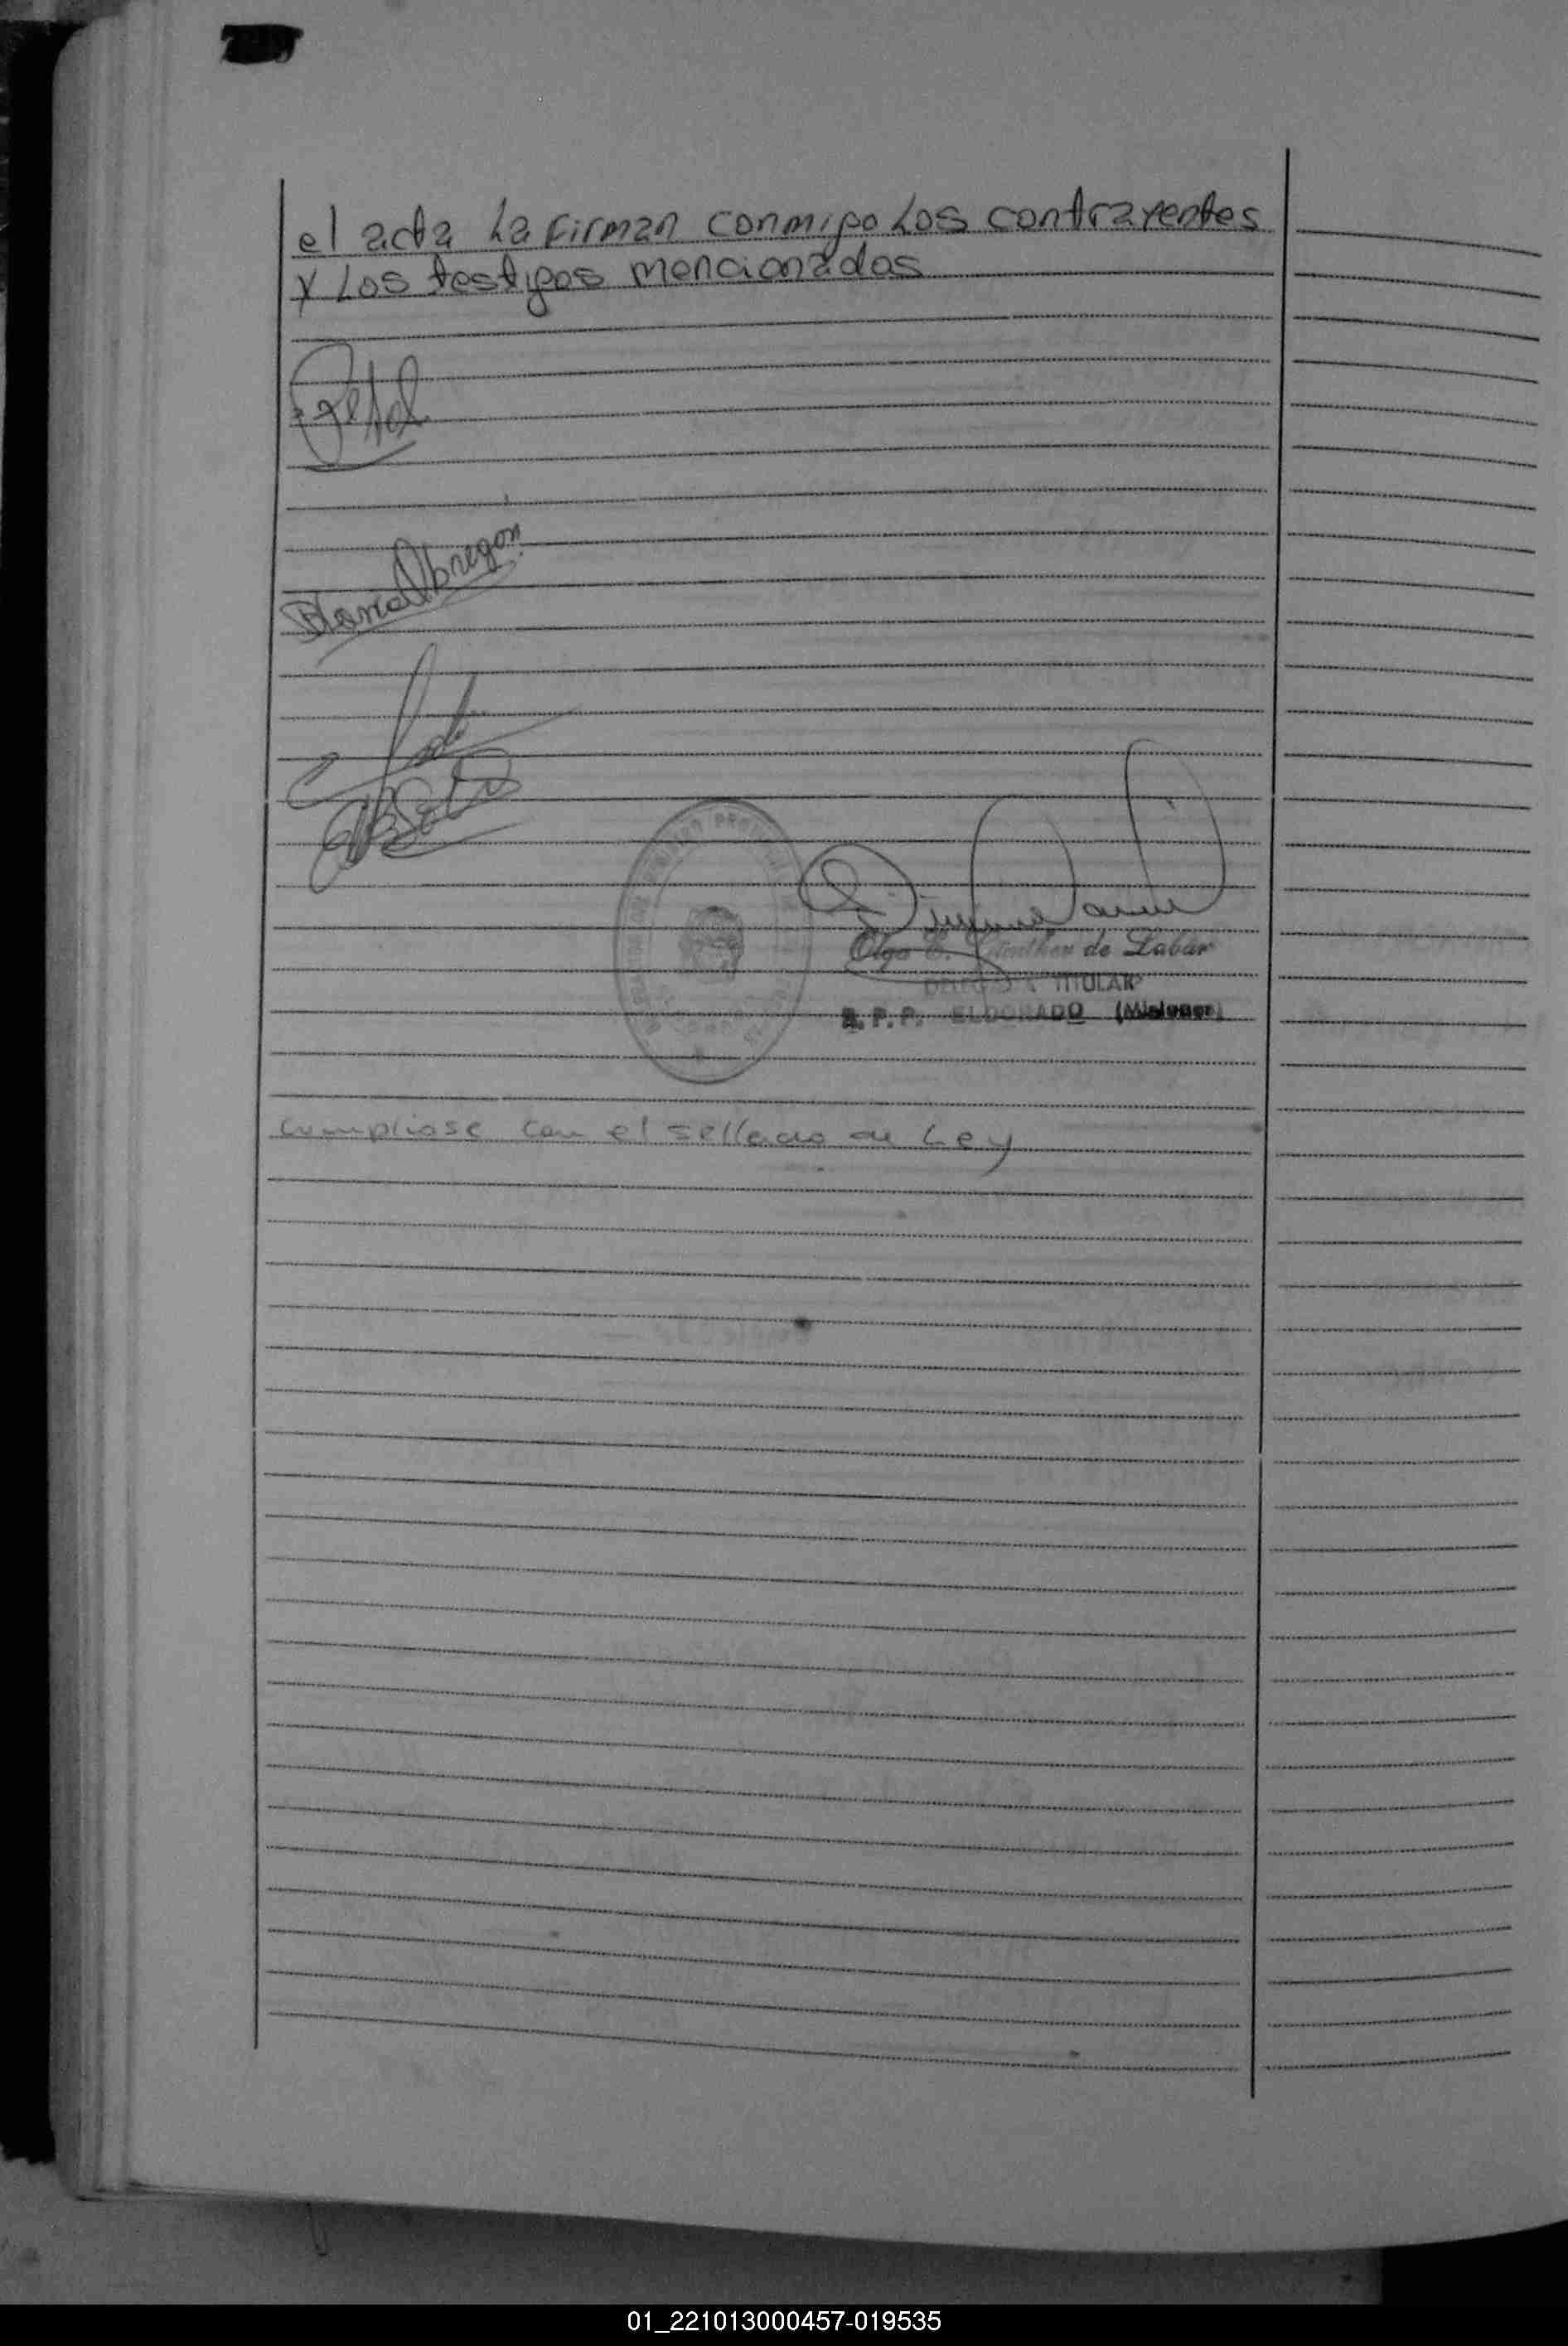 el acta La Firman conmigo Los contrayentes
y Los testigos mencionados
Blanca Obregon
Olga E. de Labar
DELEGADA TITULAR
R. P. P. ELDORADO (Misiones)
cumpliose con el sellado de Ley
01_221013000457-019535